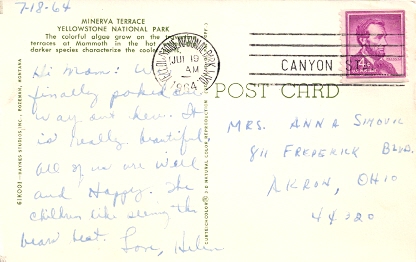 7-18-64
MINERVA TERRACE
YELLOWSTONE NATIONAL PARK
The colorful algae grow on the
terraces at Mammoth in the hot
darker species characterize the cooler
Hi Mom: We
finally poked our
way out here. It
is really beautiful
all of us are well
and Happy. The
children like seeing the
bears best. Love, Helen
E1K001—HAYNES STUDIOS INC., BOZEMAN, MONTANA
YELLOWSTONE NATIONAL PARK, WYO.
JUL 19
AM
1964
CANYON STA.
POST CARD
MRS. ANNA
811 FREDERICK BLVD.
AKRON, OHIO
44320